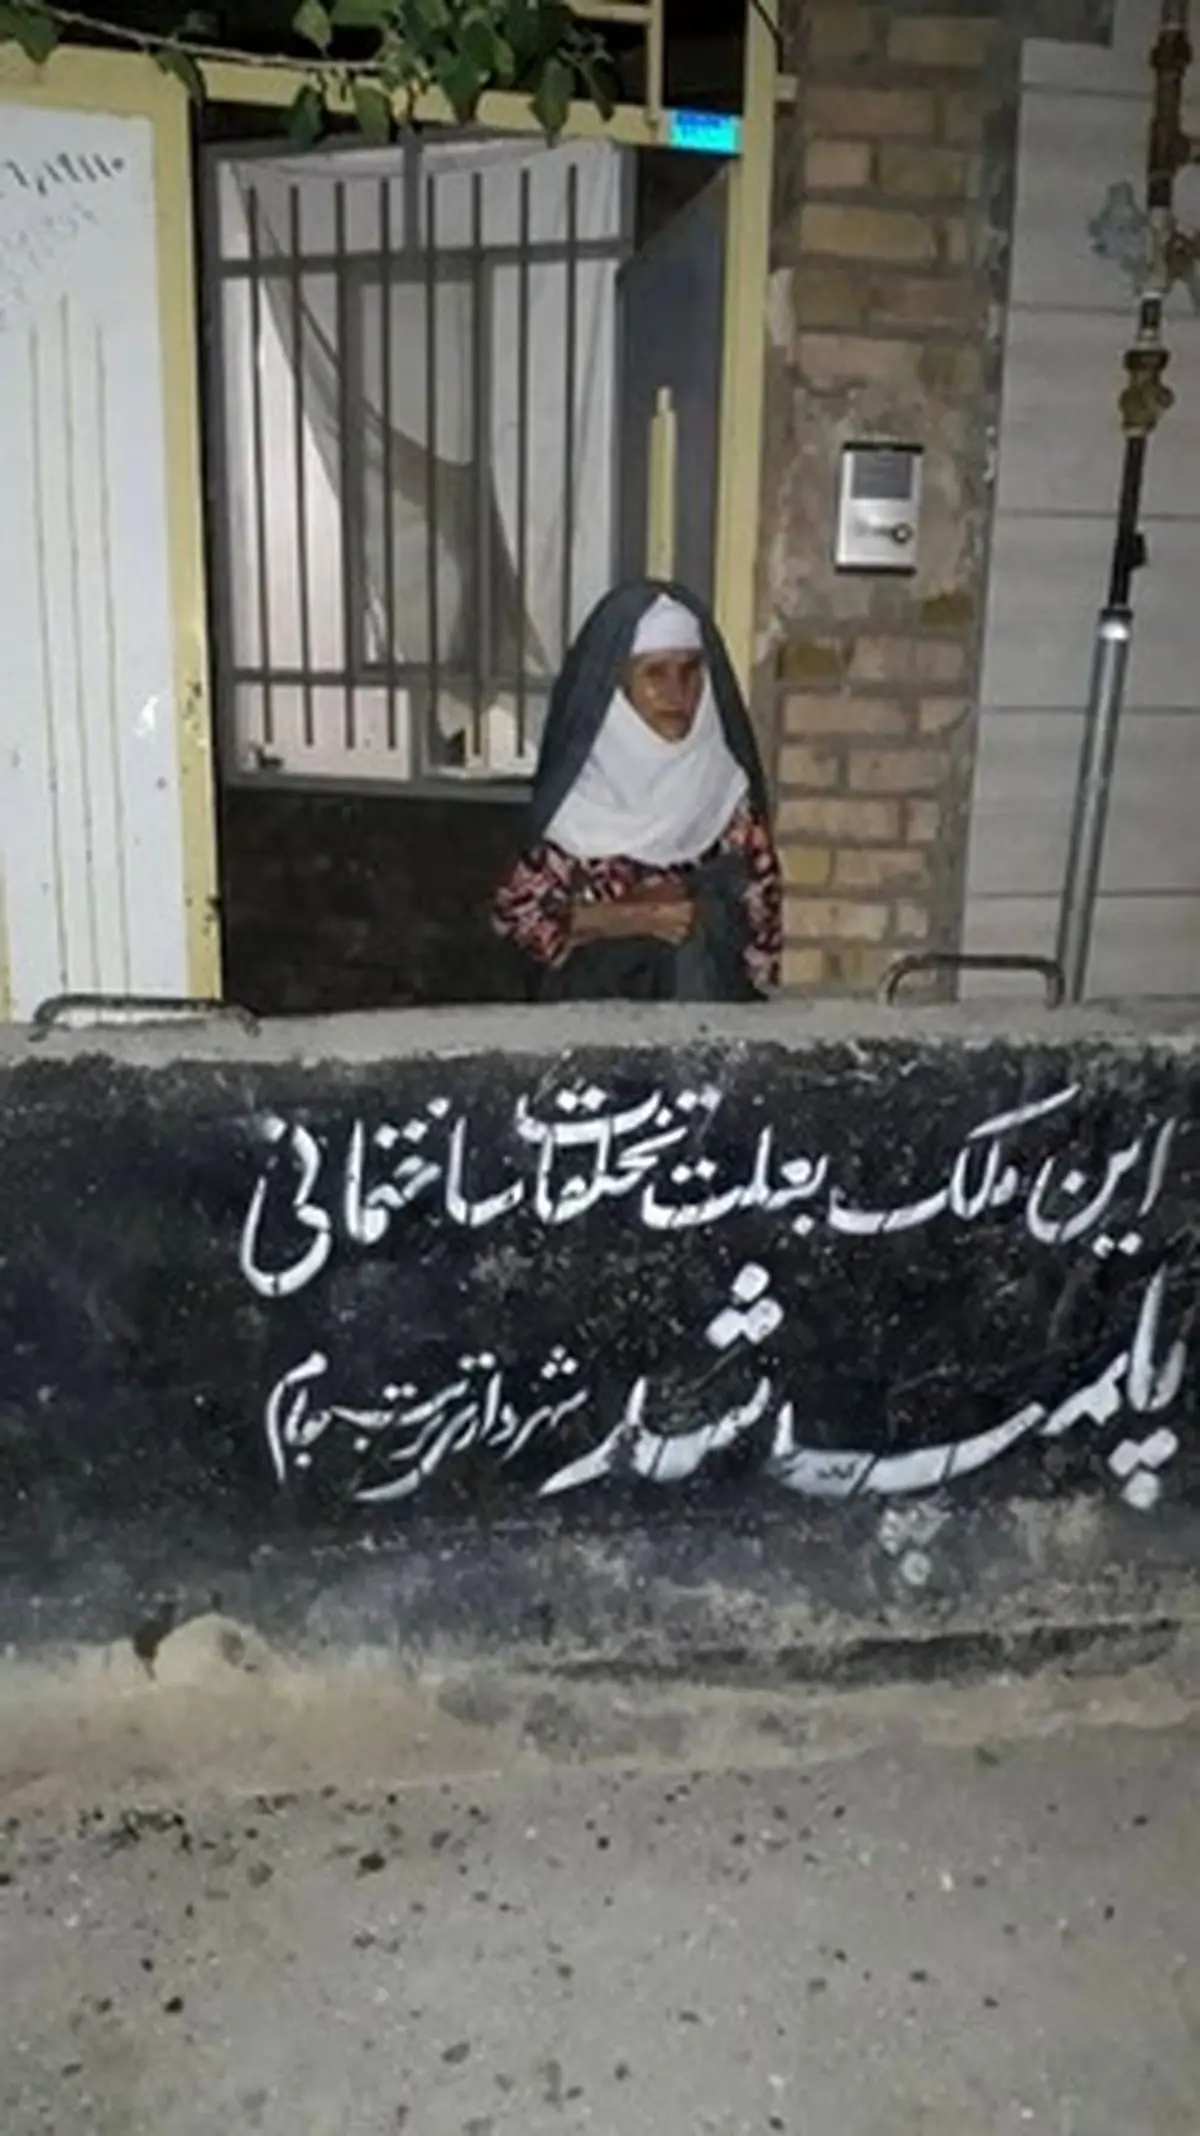 این ملک بعلت تخلفات ساختمانی
پلمپ شد شهرداری تربت جام